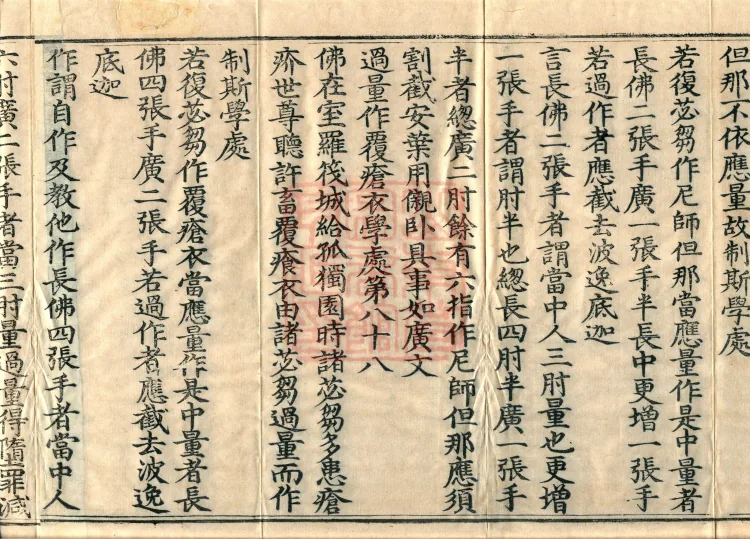 但那不依應量故制斯學處
若復苾芻作尼師但那當應量作是中量者
長佛二張手廣一張手半長中更增一張手
若過作者應截去波逸底迦
言長佛二張手者謂當中人三肘量也更增
一張手者謂肘半也總長四肘半廣一張手
半者總廣二肘餘有六指作尼師但那應須
割截安葉用儭卧具事如廣文
過量作覆瘡衣學處第八十八
佛在室羅筏城給孤獨園時諸苾芻多患瘡
疥世尊聽許畜覆瘡衣由諸苾芻過量而作
制斯學處
若復苾芻作覆瘡衣當應量作是中量者長
佛四張手廣二張手若過作者應截去波逸
底迦
作謂自作及教他作長佛四張手者當中人
六肘廣二張手者當三肘量過量得墮罪減